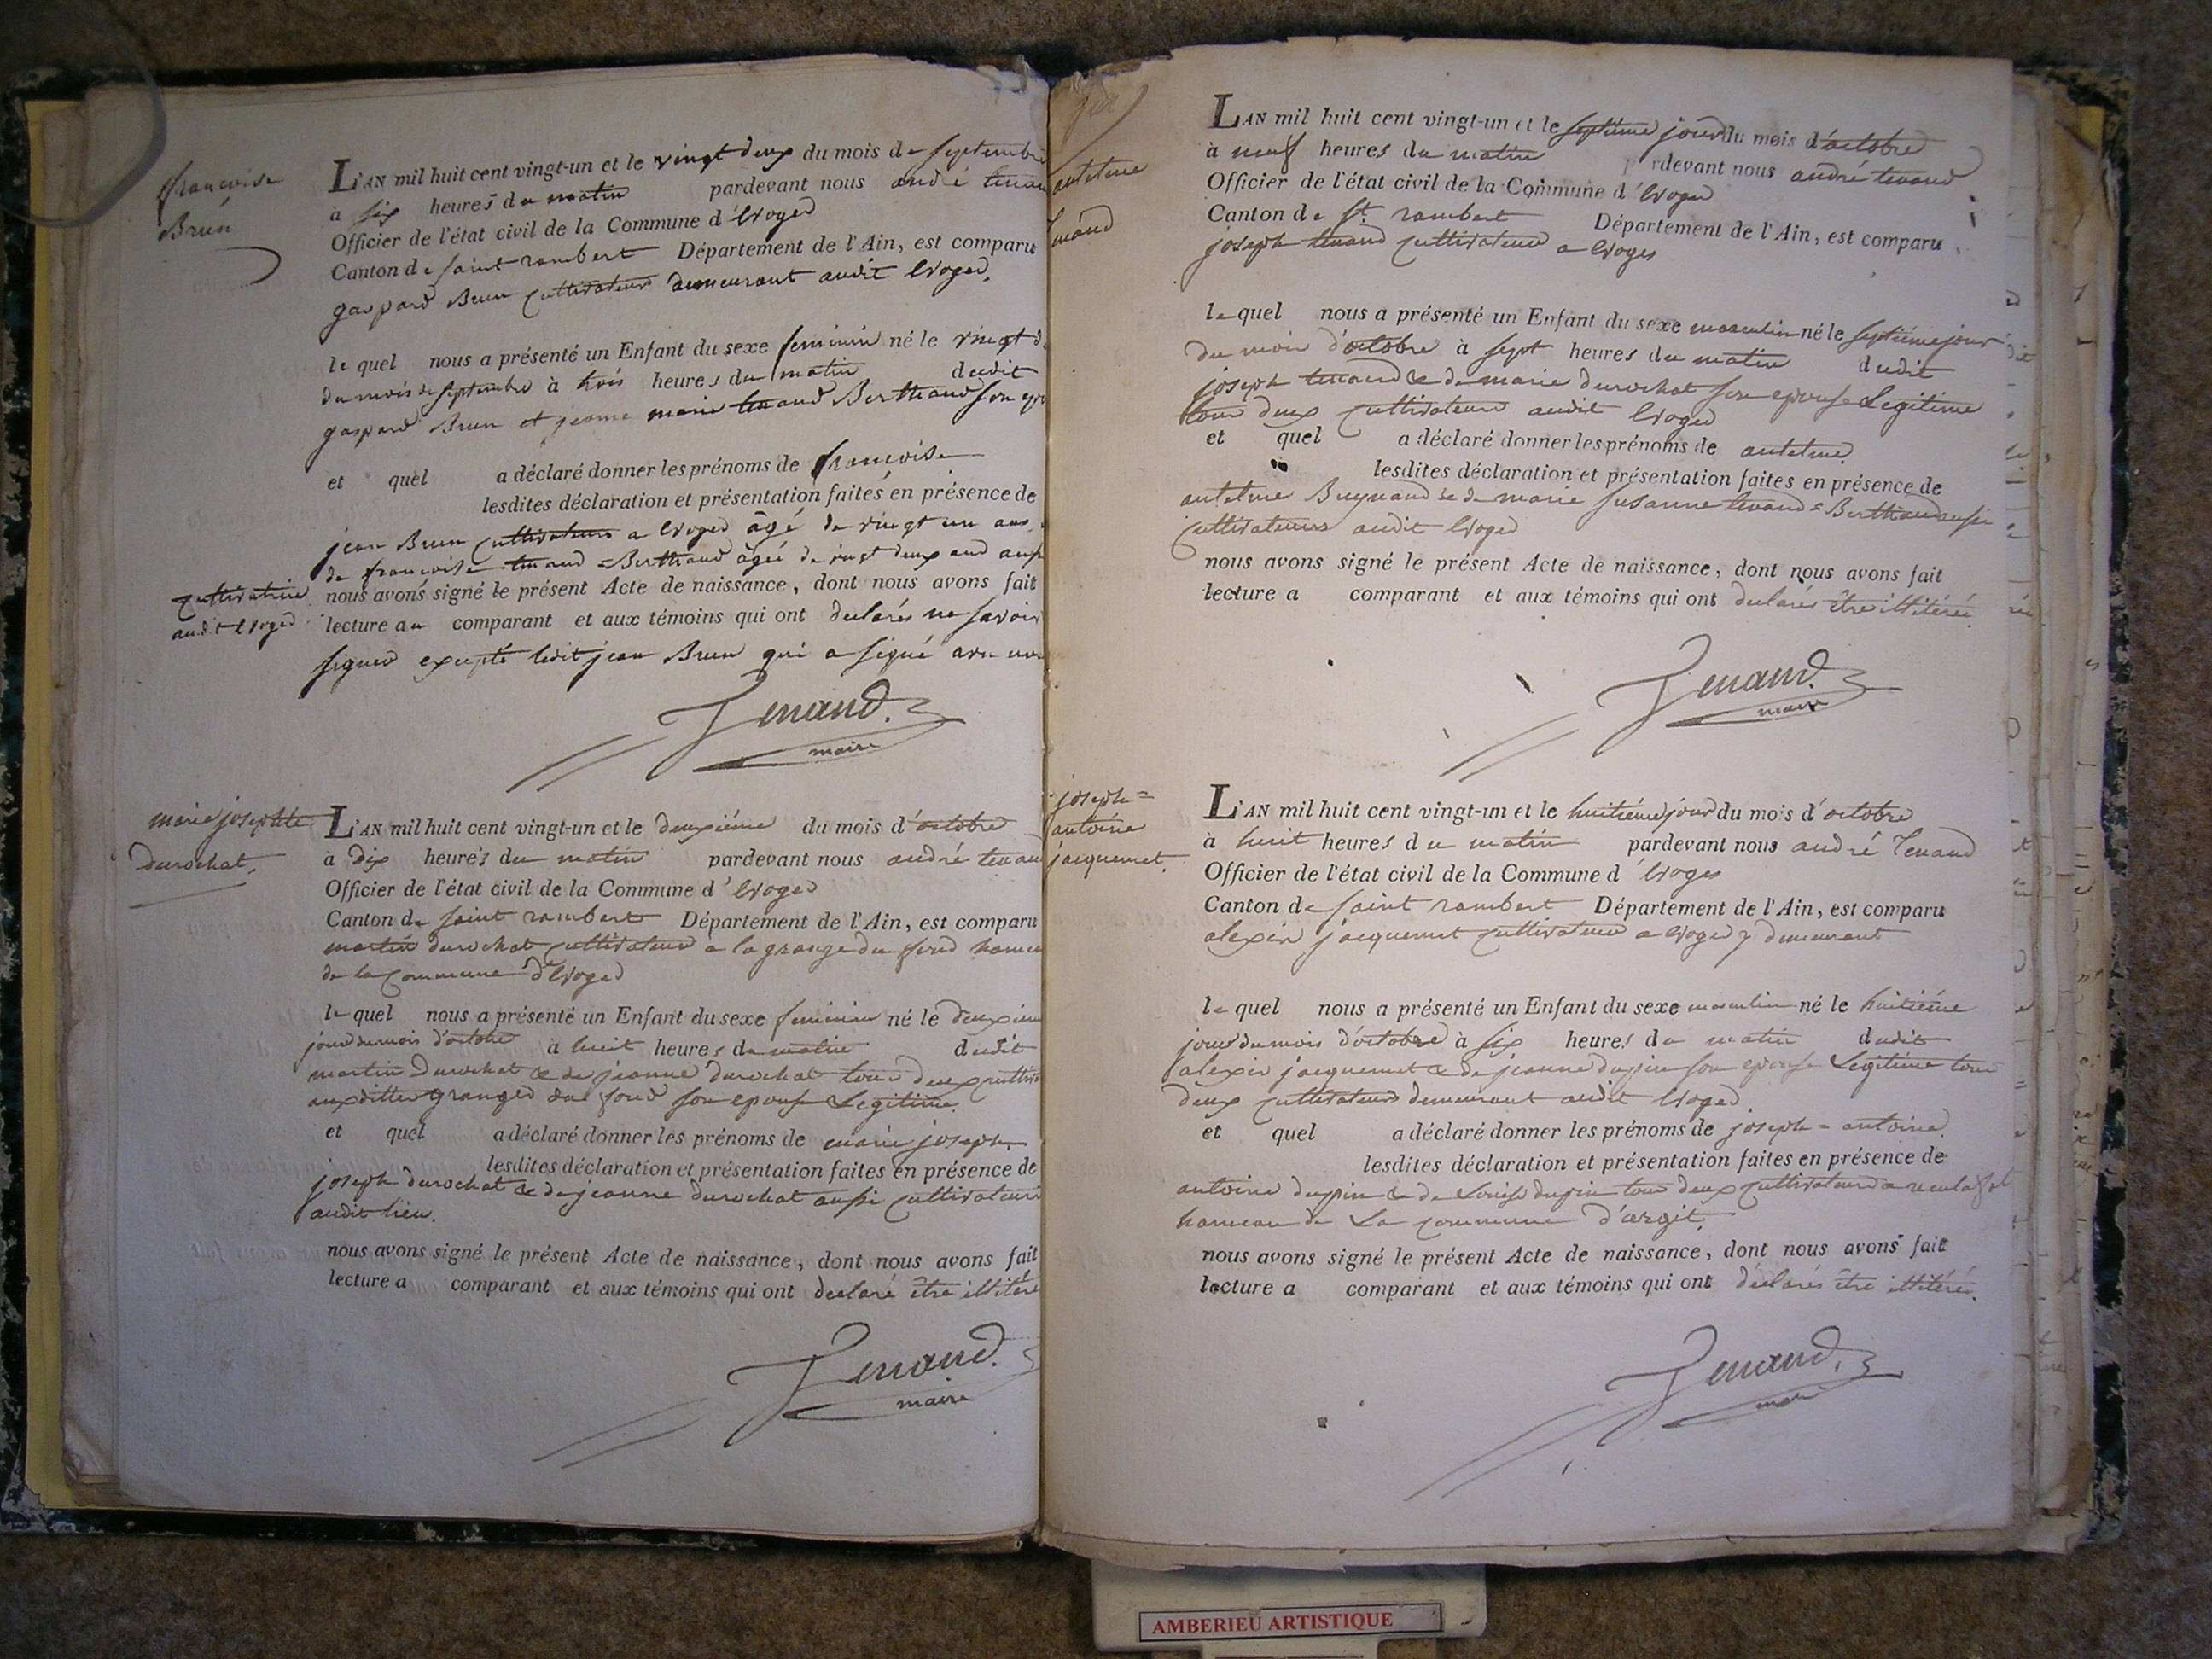 françoise
Brun
L'AN mil huit cent vingt-un et le vingt deux du mois de septembre
à six heures du matin pardevant nous andré tenand
Officier de l'état civil de la Commune d'Evoges
Canton de saint rambert Département de l'Ain, est comparu
gaspard Brun cultivateur demeurant audit Evoges.
le quel nous a présenté un Enfant du sexe feminin né le vingt
du mois de septembre à trois heures du matin dudit
gaspard Brun et jeanne marie tenand Berthaud son
et quel a déclaré donner les prénoms de françoise
lesdites déclaration et présentation faites en présence de
jean Brun cultivateur a Evoges âgé de vingt un ans
de françoise tenand = Berthaud âgée de vingt deux ans aussi
cultivatrice
audit Evoges
nous avons signé le présent Acte de naissance, dont nous avons fait
lecture au comparant et aux témoins qui ont declarés ne savoir
signer excepté ledit jean Brun qui a signé avec nous
Tenand.
maire
marie josephte
durochat.
L'AN mil huit cent vingt-un et le deuxiéme du mois d'octobre
à dix heures du matin pardevant nous andré tenand
Officier de l'état civil de la Commune d'Evoges
Canton de saint rambert Département de l'Ain, est comparu
martin durochat cultivateur a la grange du fond hameau
de la commune d'Evoges
le quel nous a présenté un Enfant du sexe feminin né le deuxieme
jour du mois d'octobre à huit heures du matin dudit
martin Durochat & de jeanne durochat tous deux
auxdittes granges du fond son epouse Legitime.
et quel a déclaré donner les prénoms de marie josephte
lesdites déclaration et présentation faites en présence de
joseph durochat & de jeanne durochat aussi cultivateurs
audit lieu.
nous avons signé le présent Acte de naissance, dont nous avons fait
lecture a comparant et aux témoins qui ont declaré être illitéré
Tenand.
maire
antelme
tenand
L'AN mil huit cent vingt-un et le septiéme jour du mois d'octobre
à neuf heures du matin pardevant nous andré tenand
Officier de l'état civil de la Commune d'Evoges
Canton de St. rambert Département de l'Ain, est comparu
joseph tenand cultivateur a Evoges
le quel nous a présenté un Enfant du sexe masculin né le septiéme jour
du mois d'octobre à sept heures du matin dudit
joseph tenand & de marie durochat son epouse Legitime
tous deux cultivateurs audit Evoges
et quel a déclaré donner les prénoms de antelme.
lesdites déclaration et présentation faites en présence de
antelme Bugnand & de marie susanne tenand = Berthaud aussi
cultivateurs audit Evoges
nous avons signé le présent Acte de naissance, dont nous avons fait
lecture a comparant et aux témoins qui ont declarés être illitérés.
Tenand.
maire
joseph =
antoine
jacquemet.
L'AN mil huit cent vingt-un et le huitiéme jour du mois d'octobre
à huit heures du matin pardevant nous andré Tenand
Officier de l'état civil de la Commune d'Evoges
Canton de saint rambert Département de l'Ain, est comparu
alexis jacquemet cultivateur a Evoges y demeurant
le quel nous a présenté un Enfant du sexe masculin né le huitiéme
jour du mois d'octobre à six heures du matin dudit
alexis jacquemet & de jeanne dupin son epouse Legitime tous
deux cultivateurs demeurant audit Evoges
et quel a déclaré donner les prénoms de joseph = antoine.
lesdites déclaration et présentation faites en présence de
antoine dupin & de Louise dupin tous deux cultivateurs a
hameau de La commune d'argit.
nous avons signé le présent Acte de naissance, dont nous avons fait
lecture a comparant et aux témoins qui ont déclarés être illitérés.
Tenand.
maire
AMBERIEU ARTISTIQUE